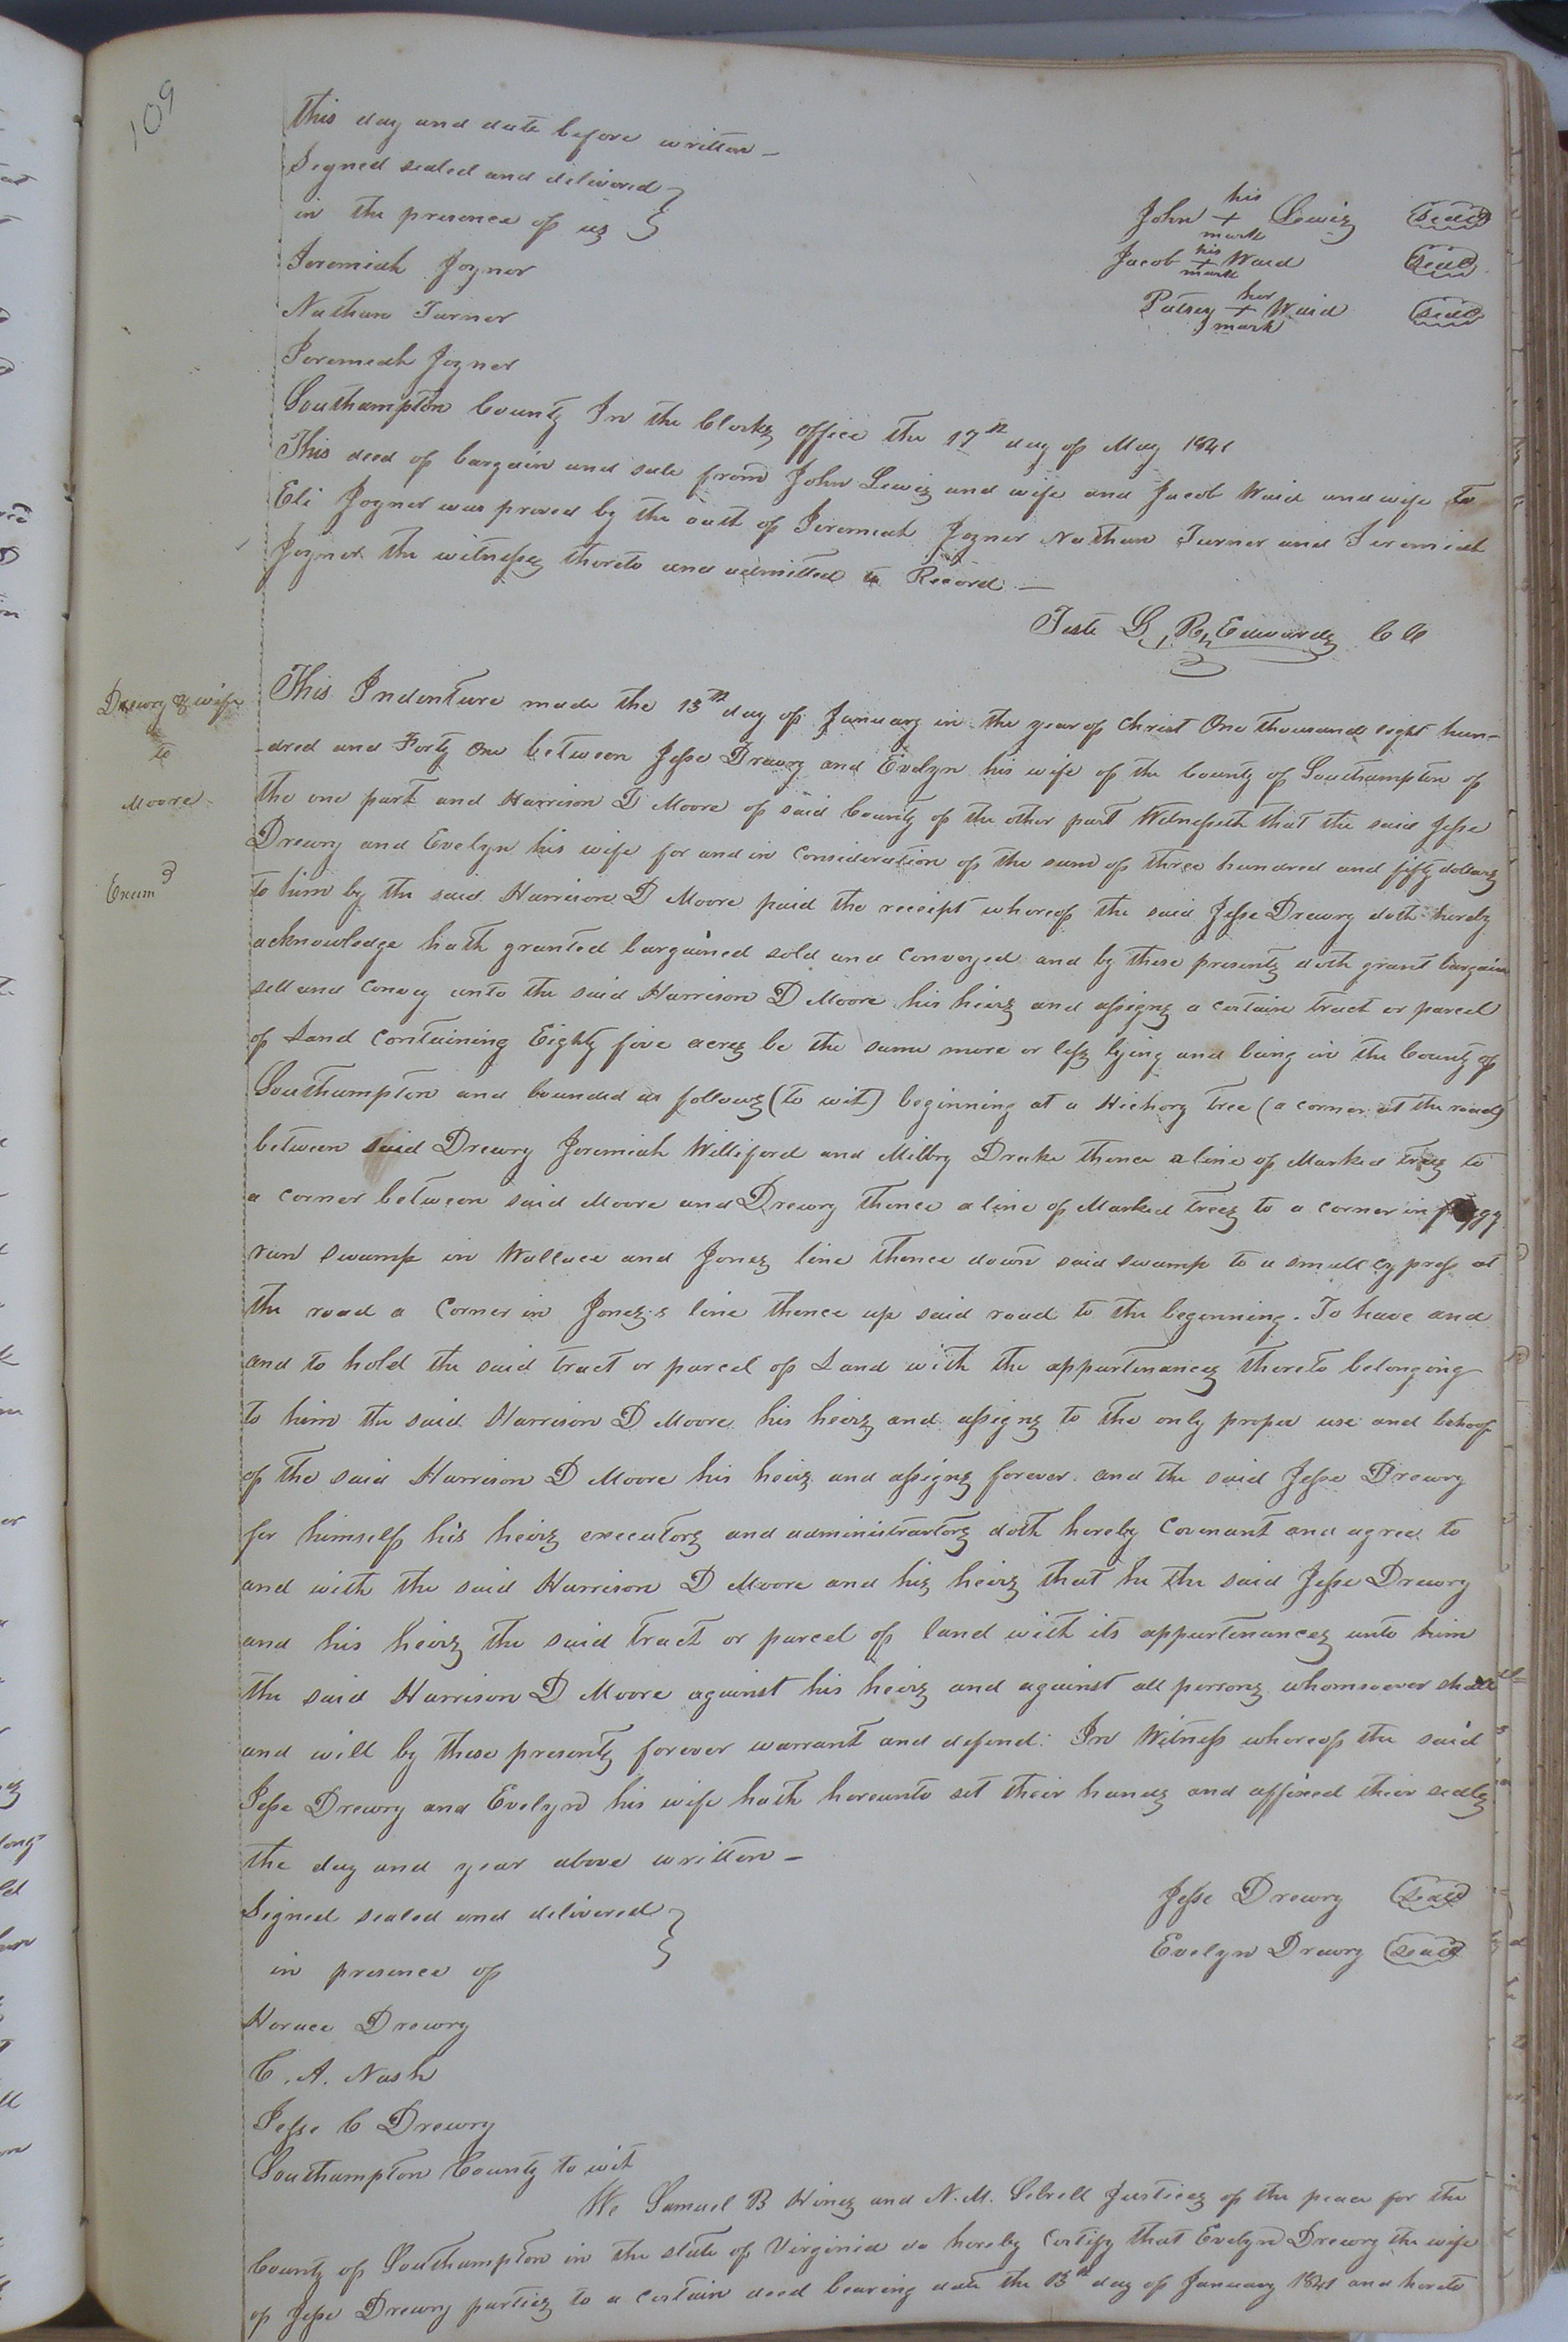 109
this day and date before written –
Signed sealed and delivered }
in the presence of us }
his
John + Lewis seal
mark
his
Jacob + Waid seal
mark
her
Patsey + Waid seal
mark
Jeremiah Joyner
Nathan Turner
Jeremiah Joyner
Southampton County In the Clerks office the 17th day of May 1841
This deed of bargain and sale from John Lewis and wife and Jacob Waid and wife to
Eli Joyner was proved by the oath of Jeremiah Joyner Nathan Turner and Jeremiah
Joyner the witnesses thereto and admitted to Record –
Teste L. R. Edwards CC
Drewry & wife
to
Moore
Exam d
This Indenture made the 13th day of January in the year of Christ One thousand eight hun-
-dred and Forty One between Jesse Drewry and Evelyn his wife of the County of Southampton of
the one part and Harrison D Moore of said County of the other part Witnesseth that the said Jesse
Drewry and Evelyn his wife for and in consideration of the sum of three hundred and fifty dollars
to him by the said Harrison D Moore paid the receipt whereof the said Jesse Drewry doth hereby
acknowledge hath granted bargained sold and conveyed and by these presents doth grant bargain
sell and convey unto the said Harrison D Moore his heirs and assigns a certain tract or parcel
of Land containing Eighty five acres be the same more or less lying and being in the County of
Southampton and bounded as follows (to wit) beginning at a Hickory tree (a corner at the road)
between said Drewry Jeremiah Williford and Milbry Drake thence a line of Marked trees to
a corner between said Moore and Drewry thence a line of Marked trees to a corner in
run swamp in Wallace and Jones line thence down said swamp to a small cypress at
the road a Corner in Jones's line thence up said road to the beginning. To have and
and to hold the said tract or parcel of Land with the appurtenances thereto belonging
to him the said Harrison D Moore his heirs and assigns to the only proper use and behoof
of the said Harrison D Moore his heirs and assigns forever and the said Jesse Drewry
for himself his heirs executors and administrators doth hereby covenant and agree to
and with the said Harrison D Moore and his heirs that he the said Jesse Drewry
and his heirs the said tract or parcel of land with its appurtenances unto him
the said Harrison D Moore against his heirs and against all persons whomsoever shall
and will by these presents forever warrant and defend. In Witness whereof the said
Jesse Drewry and Evelyn his wife hath hereunto set their hands and affixed their seals
the day and year above written –
Signed sealed and delivered }
in presence of }
Jesse Drewry seal
Evelyn Drewry seal
Horace Drewry
C. A. Nash
Jesse C Drewry
Southampton County to wit
We Samuel B Hines and N. M. Sebrell Justices of the peace for the
County of Southampton in the state of Virginia do hereby certify that Evelyn Drewry the wife
of Jesse Drewry parties to a certain deed bearing date the 13th day of January 1841 and hereto